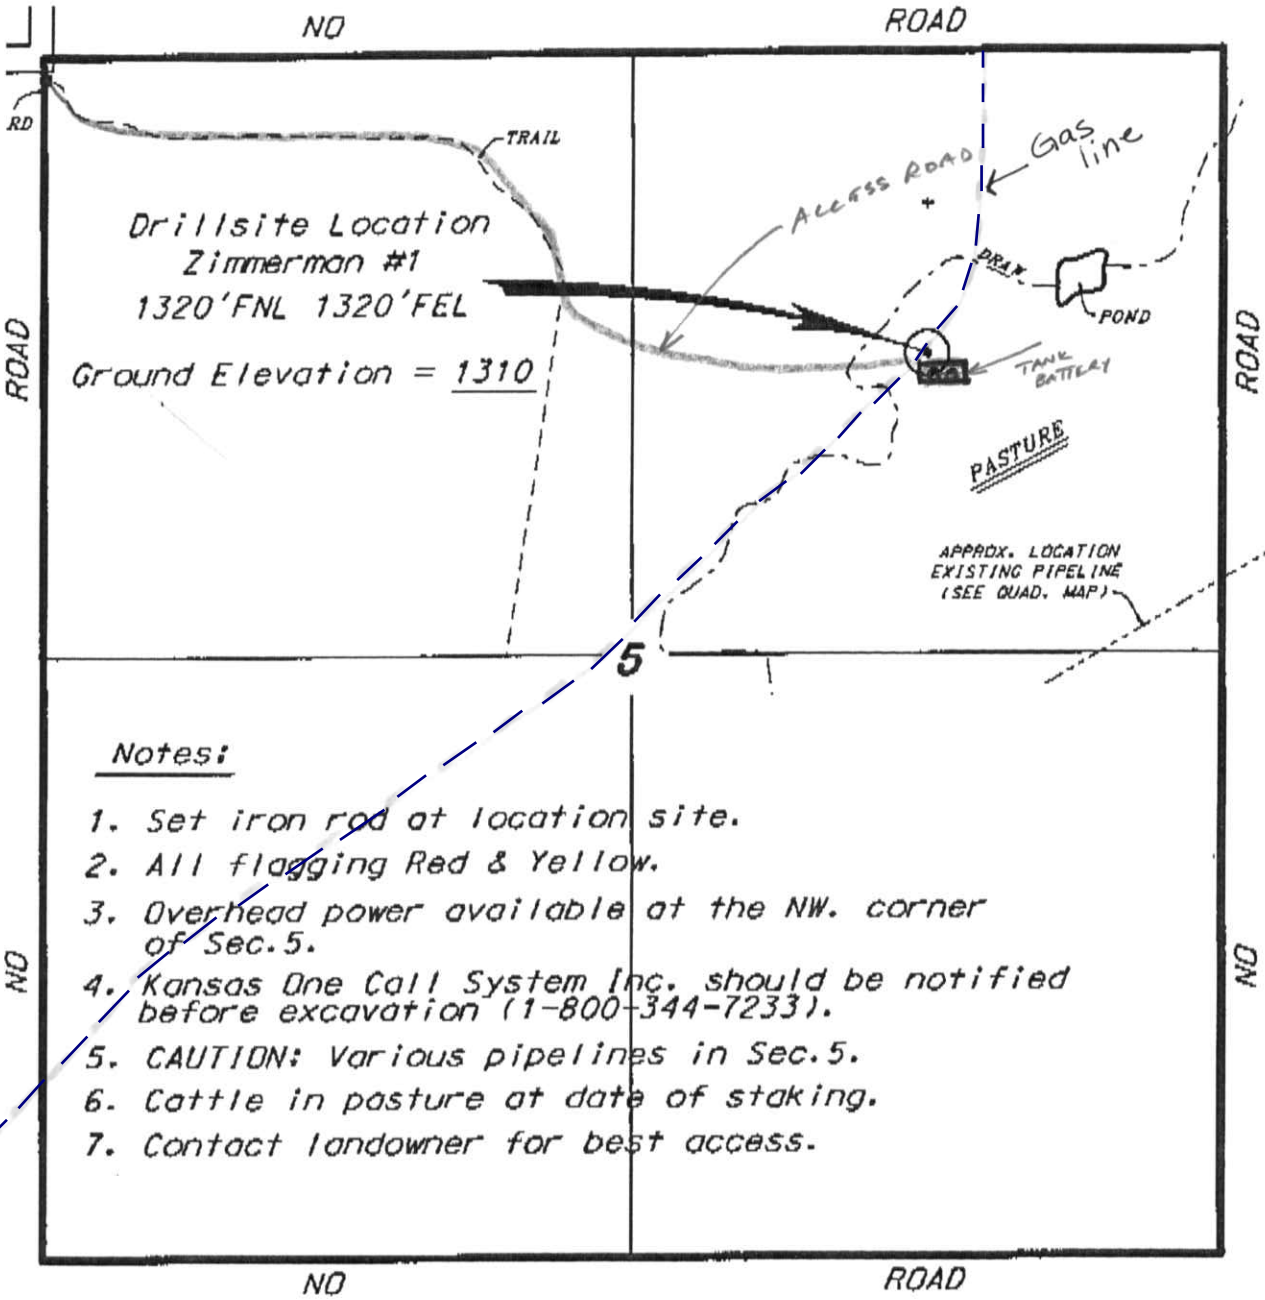 NO ROAD
RD
TRAIL
ACCESS ROAD
Gas
line
Drillsite Location
Zimmerman #1
1320'FNL 1320'FEL
Ground Elevation = 1310
DRAW
POND
TANK
BATTERY
ROAD
ROAD
PASTURE
APPROX. LOCATION
EXISTING PIPELINE
(SEE QUAD. MAP)
5
Notes:
1. Set iron rod at location site.
2. All flagging Red & Yellow.
3. Overhead power available at the NW. corner
of Sec.5.
4. Kansas One Call System Inc. should be notified
before excavation (1-800-344-7233).
5. CAUTION: Various pipelines in Sec.5.
6. Cattle in pasture at date of staking.
7. Contact landowner for best access.
NO
NO
NO ROAD